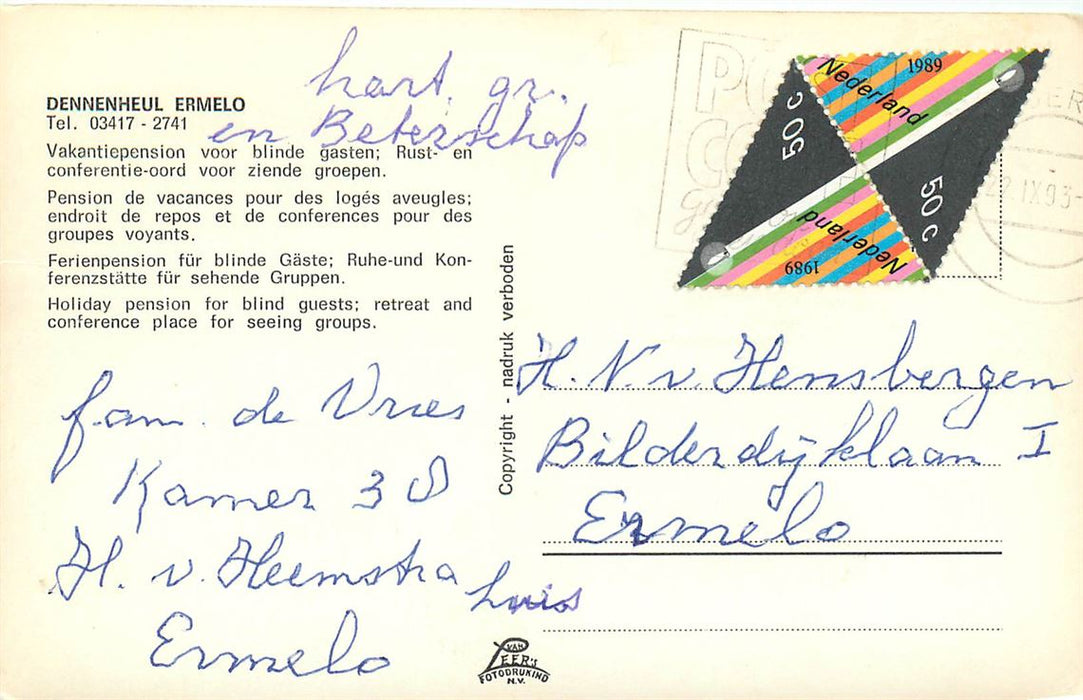 hart. gr.
en Beterschap
DENNENHEUL ERMELO
Tel. 03417 - 2741
Vakantiepension voor blinde gasten; Rust- en
conferentie-oord voor ziende groepen.
Pension de vacances pour des logés aveugles;
endroit de repos et de conferences pour des
groupes voyants.
Ferienpension für blinde Gäste; Ruhe-und Kon-
ferenzstätte für sehende Gruppen.
Holiday pension for blind guests; retreat and
conference place for seeing groups.
fam. de Vries
Kamer 38
H. v. Heemstra huis
Ermelo
Copyright - nadruk verboden
VAN
LEER's
FOTODRUKIND
N.V.
1989
Nederland
50 c
50 c
Nederland
1989
IX 93
H. N. v. Hensbergen
Bilderdijklaan I
Ermelo